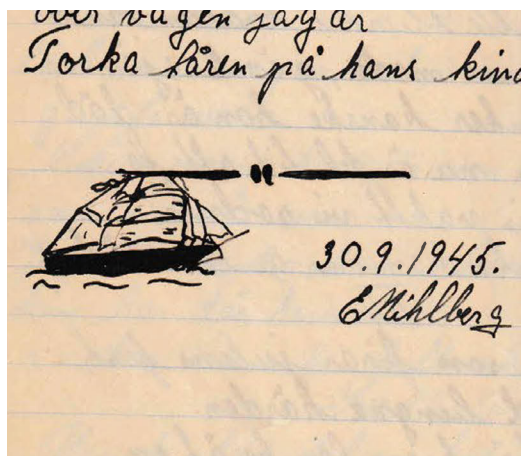 över vågen jagar
Torka tåren på hans kind
30.9.1945.
EMihlberg